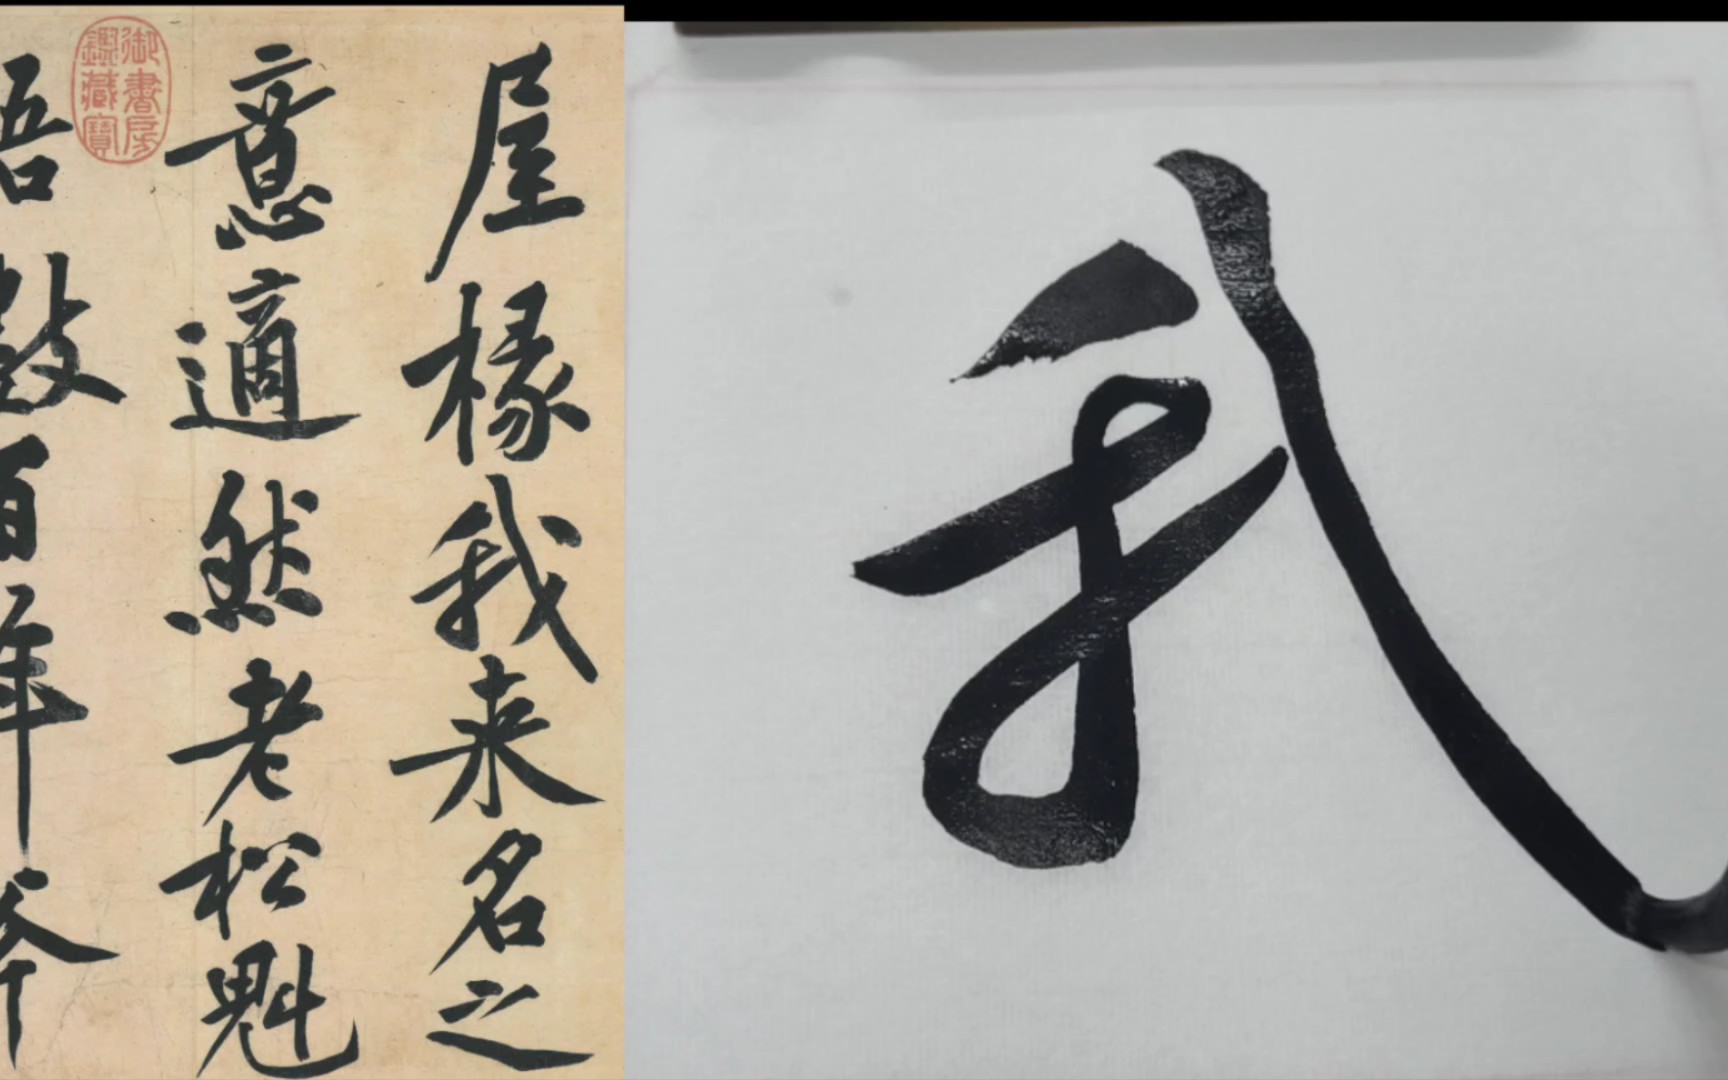 屋椽我来名之
意適然老松魁
梧數百年斧
御書房
鑑藏寶
我